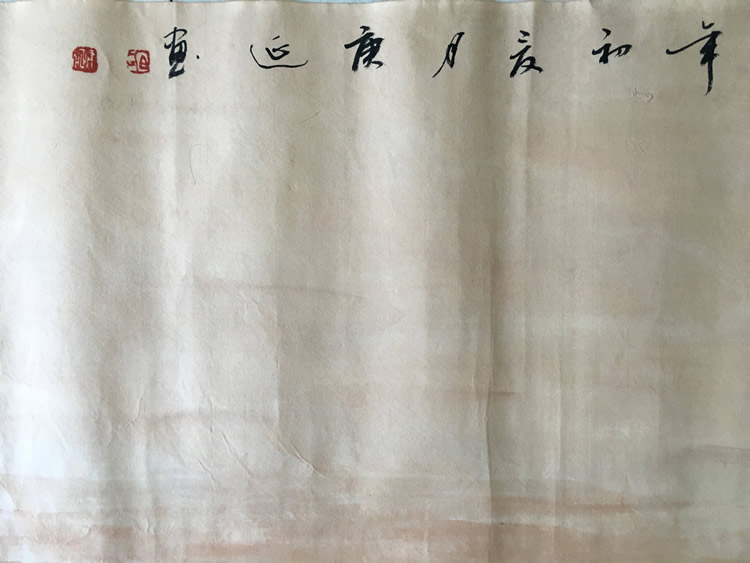 年初夏月庚延画